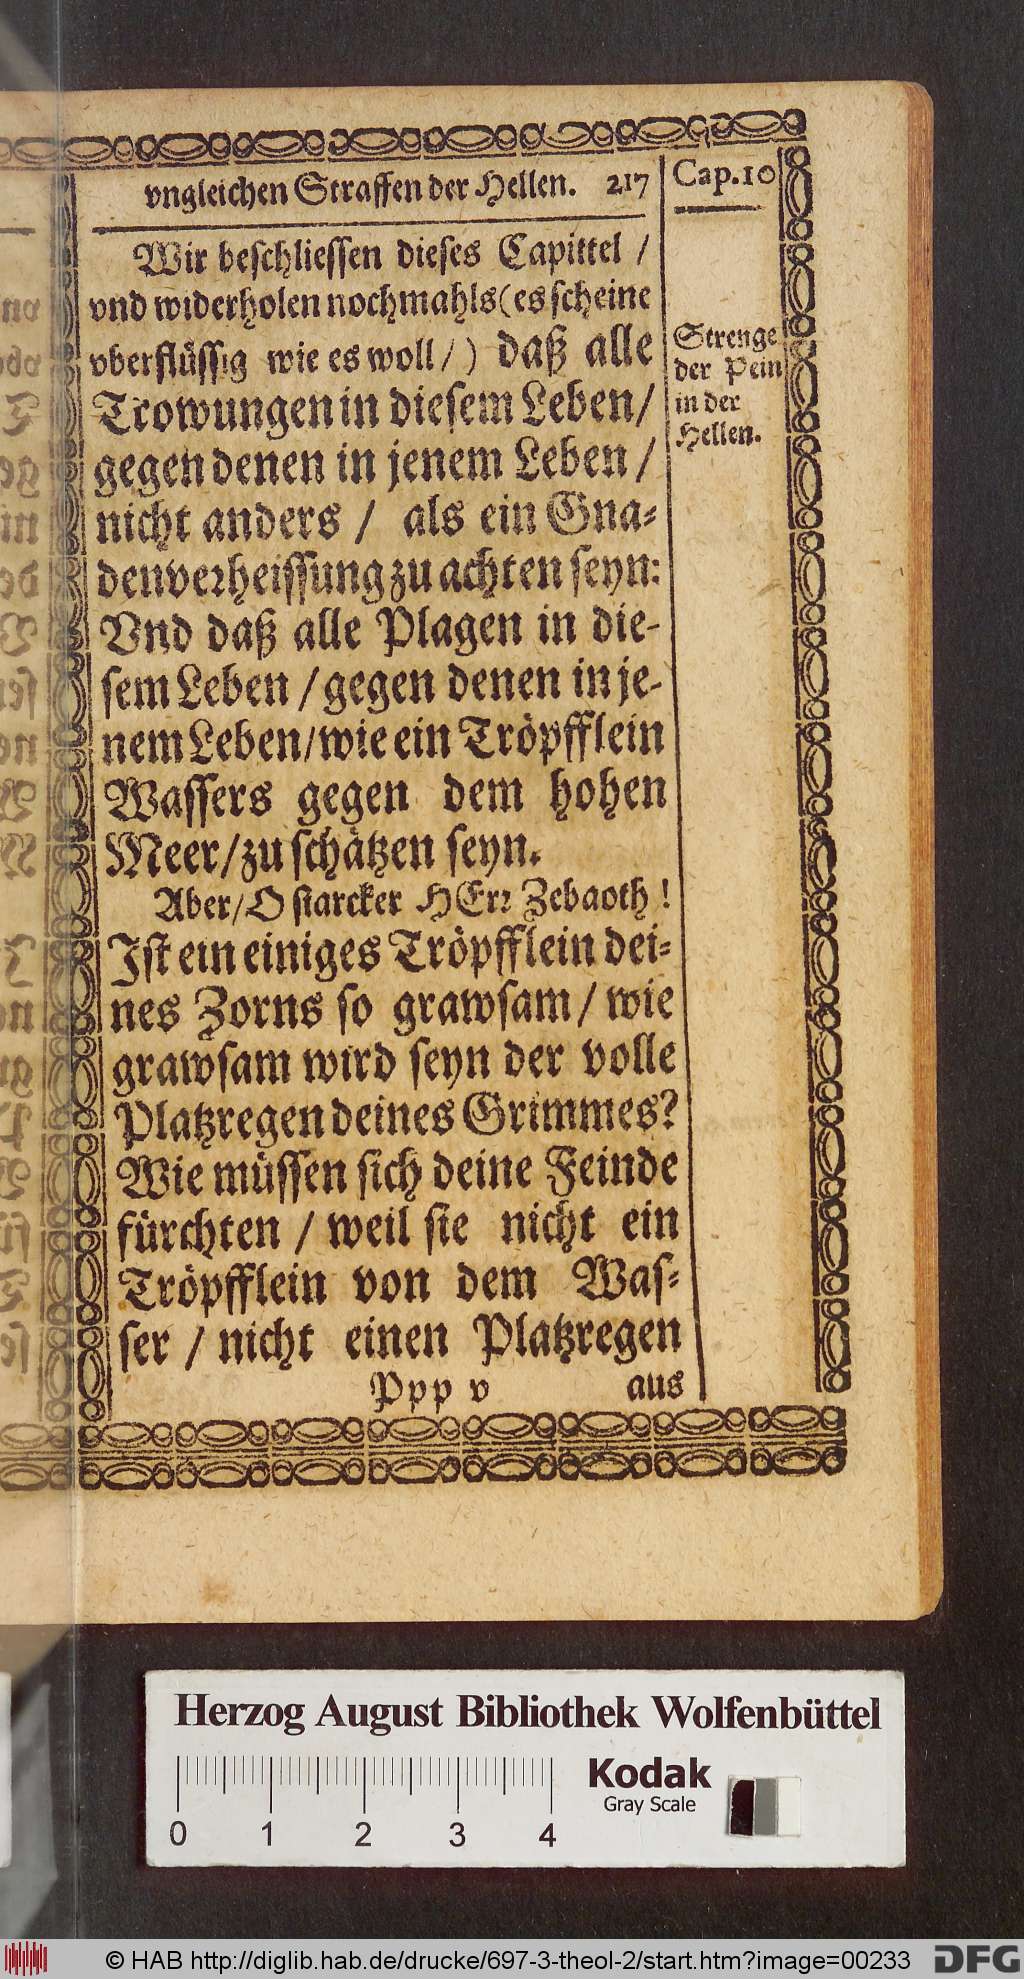 vngleichen Straffen der Hellen. 217
Cap.10
Wir beschliessen dieses Capittel /
vnd widerholen nochmahls (es scheine
vberflüssig wie es woll /) daß alle
Trowungen in diesem Leben /
gegen denen in jenem Leben /
nicht anders / als ein Gna-
denverheissung zu achten seyn:
Vnd daß alle Plagen in die-
sem Leben / gegen denen in je-
nem Leben / wie ein Tröpfflein
Wassers gegen dem hohen
Meer / zu schätzen seyn.
Aber / O starcker HErr Zebaoth !
Ist ein einiges Tröpfflein dei-
nes Zorns so grawsam / wie
grawsam wird seyn der volle
Platzregen deines Grimmes?
Wie müssen sich deine Feinde
fürchten / weil sie nicht ein
Tröpfflein von dem Was-
ser / nicht einen Platzregen
Ppp v aus
Strenge
der Pein
in der
Hellen.
Herzog August Bibliothek Wolfenbüttel
Kodak
Gray Scale
0 1 2 3 4
© HAB http://diglib.hab.de/drucke/697-3-theol-2/start.htm?image=00233
DFG